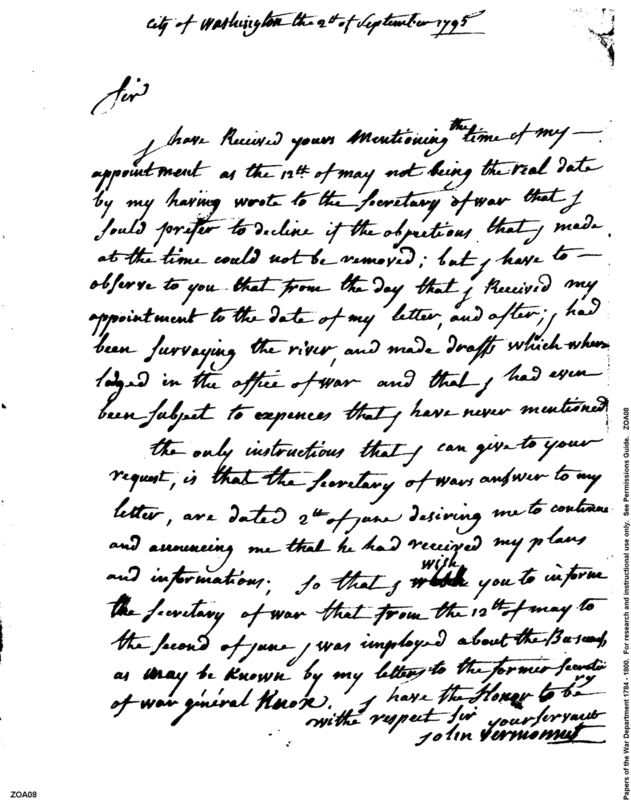 City of Washington the 2th of September 1795
Sir
I have Received yours Mentioning the time of my —
appointment as the 12th of may not being the real date
by my having wrote to the Secretary of war that I
Sould prefer to decline if the objections that I made
at the time could not be removed; but I have to —
observe to you that from the day that I Received my
appointment to the date of my letter, and after; I had
been Surveying the river, and made drafts which wher
lodged in the office of war and that I had even
been Subject to expences that I have never mentioned
the only instructions that I can give to your
request, is that the Secretary of wars answer to my
letter, are dated 2th of june desiring me to continue
and announcing me that he had received my plans
and informations; So that I wish you to inform
the Secretary of war that from the 12th of may to
the Second of june I was imployed about the Busines
as may be Known by my letters to the former Secretary
of war général Knox. I have the Honor to be
withe respect Sir your Servant
John Vermonnet
Papers of the War Department 1784 - 1800. For research and instructional use only. See Permissions Guide. ZOA08
ZOA08